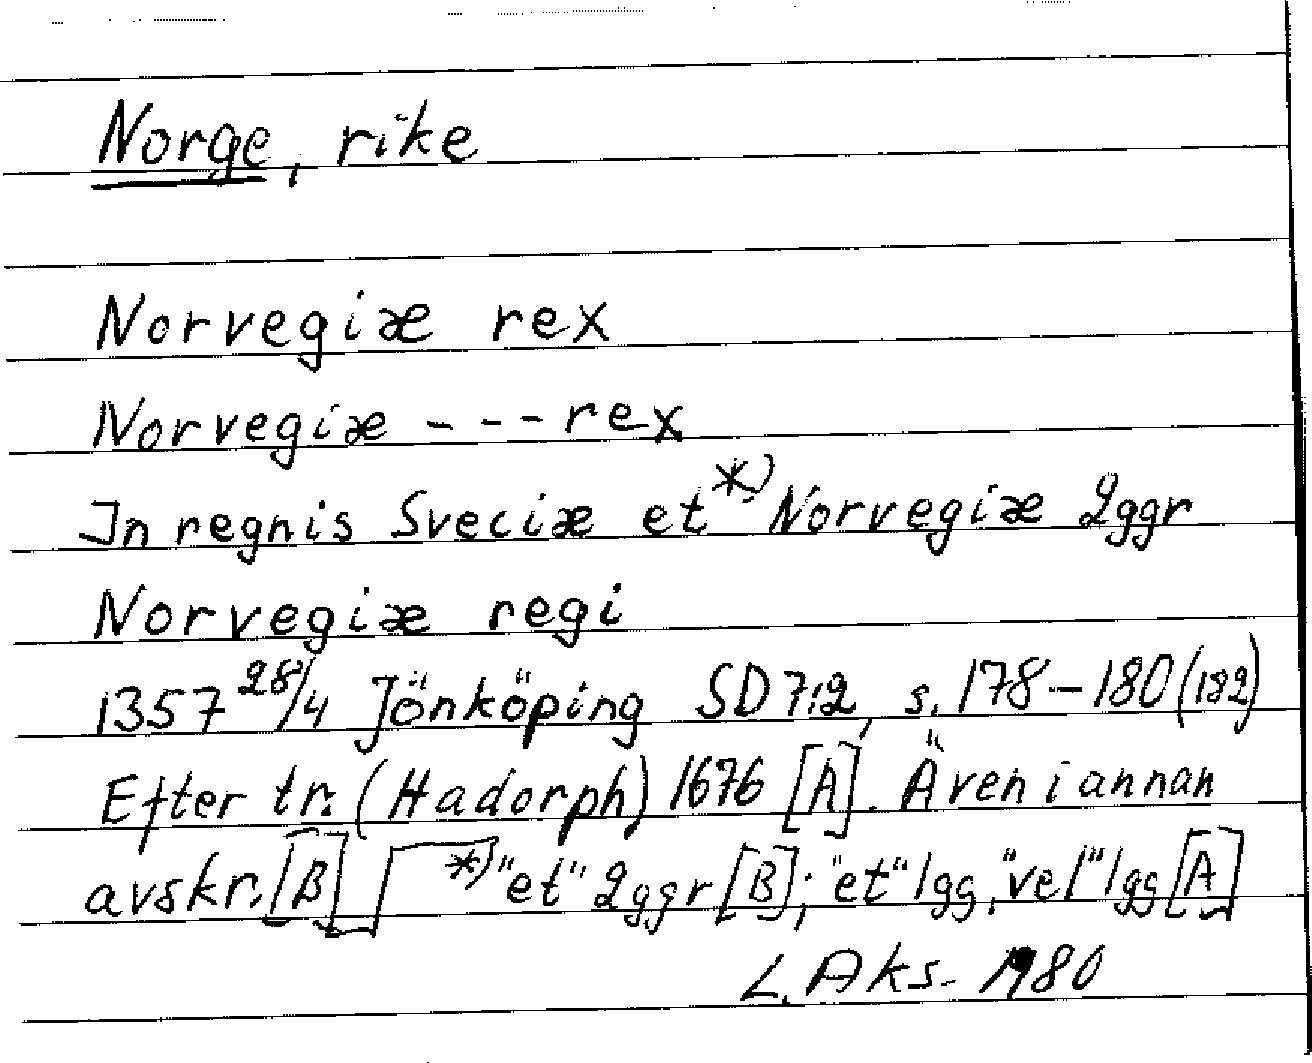 Norge, rike
Norvegiæ rex
Norvegiæ - - - rex
In regnis Sveciæ et *) Norvegiæ 2ggr
Norvegiæ regi
1357 28/4 Jönköping SD 7:2, s. 178-180 (182)
Efter tr. (Hadorph) 1676 [A]. Även i annan
avskr. [B] *) "et" 2ggr [B]; "et" 1gg, "vel" 1gg [A]
L. Aks. 1980